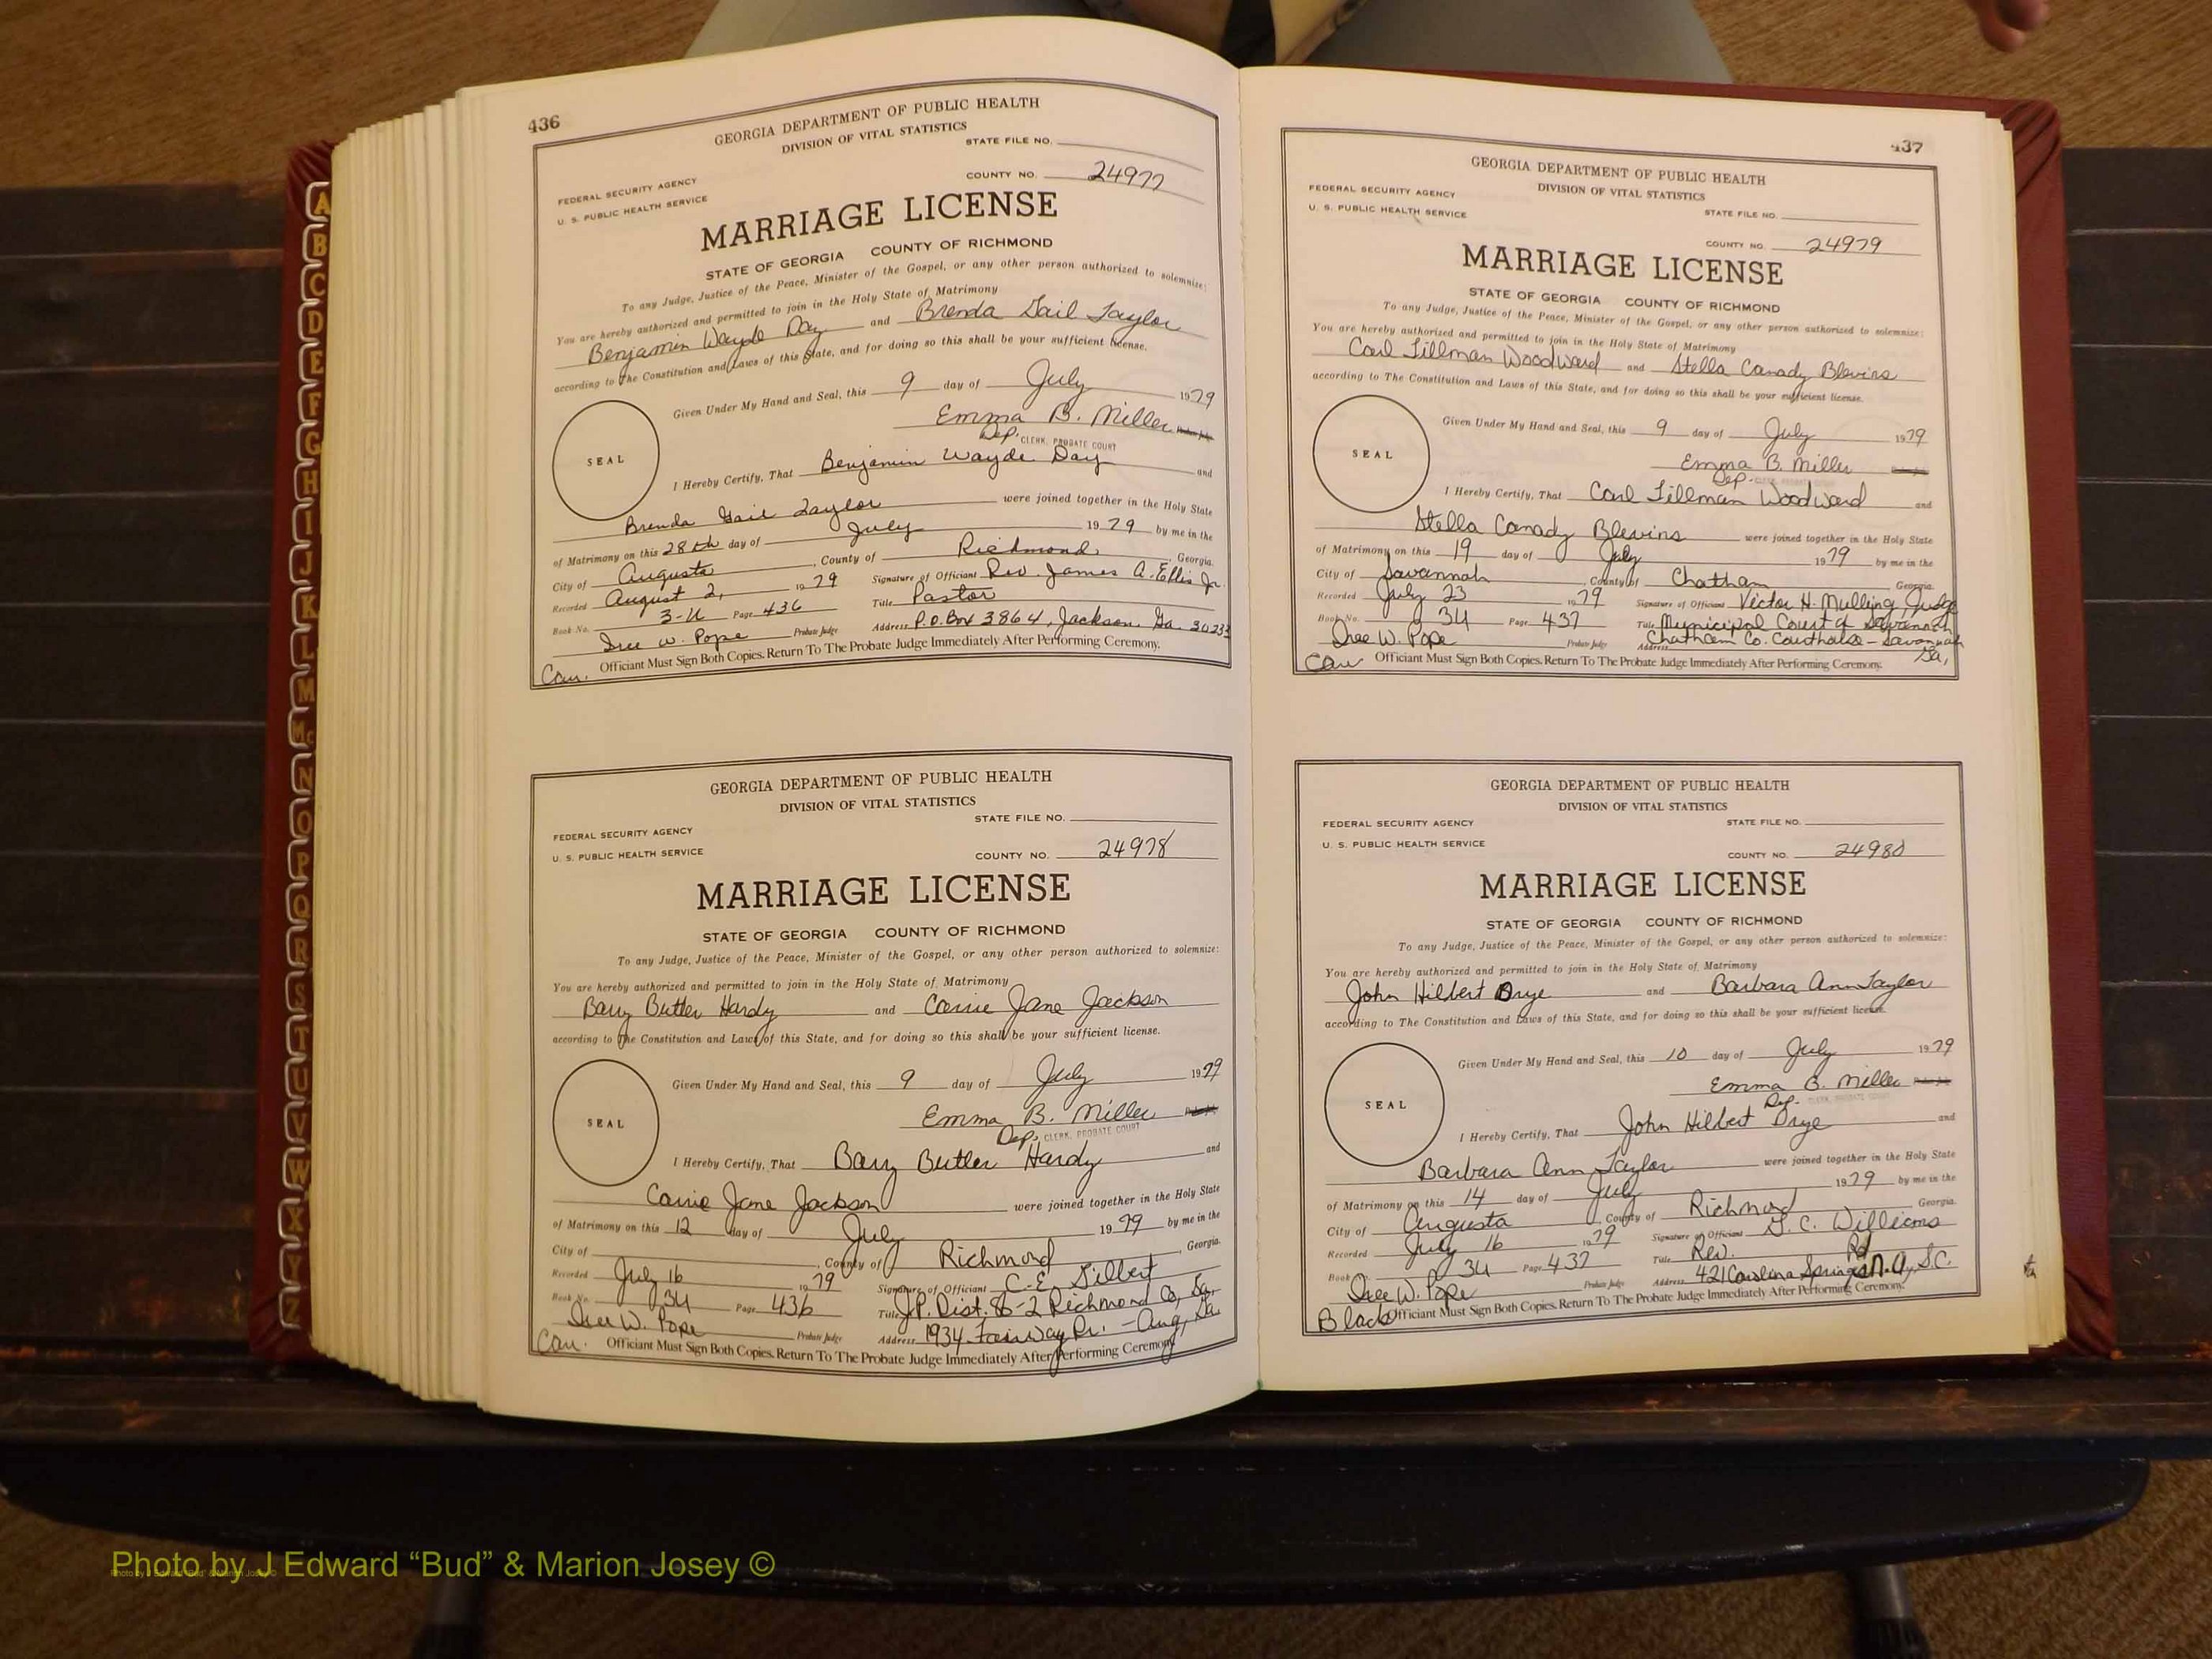 436
GEORGIA DEPARTMENT OF PUBLIC HEALTH
DIVISION OF VITAL STATISTICS
STATE FILE NO.
FEDERAL SECURITY AGENCY
U. S. PUBLIC HEALTH SERVICE
COUNTY NO. 24977
MARRIAGE LICENSE
STATE OF GEORGIA COUNTY OF RICHMOND
To any Judge, Justice of the Peace, Minister of the Gospel, or any other person authorized to solemnize:
You are hereby authorized and permitted to join in the Holy State of Matrimony
Benjamin Wayde Day and Brenda Gail Taylor
according to The Constitution and Laws of this State, and for doing so this shall be your sufficient license.
Given Under My Hand and Seal, this 9 day of July 1979
Emma B. Miller
Dep. CLERK, PROBATE COURT
SEAL
I Hereby Certify, That Benjamin Wayde Day and
Brenda Gail Taylor were joined together in the Holy State
of Matrimony on this 28th day of July 1979 by me in the
City of Augusta, County of Richmond, Georgia.
Recorded August 2, 1979 Signature of Officiant Rev. James A. Ellis Jr.
Book No. 3-U Page 436 Title Pastor
Isee W. Pope Probate Judge Address P.O. Box 3864, Jackson, Ga. 30233
Cau. Officiant Must Sign Both Copies. Return To The Probate Judge Immediately After Performing Ceremony.
GEORGIA DEPARTMENT OF PUBLIC HEALTH
DIVISION OF VITAL STATISTICS
STATE FILE NO.
FEDERAL SECURITY AGENCY
U. S. PUBLIC HEALTH SERVICE
COUNTY NO. 24978
MARRIAGE LICENSE
STATE OF GEORGIA COUNTY OF RICHMOND
To any Judge, Justice of the Peace, Minister of the Gospel, or any other person authorized to solemnize:
You are hereby authorized and permitted to join in the Holy State of Matrimony
Barry Butler Hardy and Carrie Jane Jackson
according to The Constitution and Laws of this State, and for doing so this shall be your sufficient license.
Given Under My Hand and Seal, this 9 day of July 1979
Emma B. Miller
Dep. CLERK, PROBATE COURT
SEAL
I Hereby Certify, That Barry Butler Hardy and
Carrie Jane Jackson were joined together in the Holy State
of Matrimony on this 12 day of July 1979 by me in the
City of , County of Richmond, Georgia.
Recorded July 16 1979 Signature of Officiant C. E. Gilbert
Book No. 3U Page 436 Title J.P. Dist. 86-2 Richmond Co, Ga.
Isee W. Pope Probate Judge Address 1934 Fairway Dr. - Aug, Ga
Cau. Officiant Must Sign Both Copies. Return To The Probate Judge Immediately After Performing Ceremony.
437
GEORGIA DEPARTMENT OF PUBLIC HEALTH
DIVISION OF VITAL STATISTICS
FEDERAL SECURITY AGENCY
U. S. PUBLIC HEALTH SERVICE
STATE FILE NO.
COUNTY NO. 24979
MARRIAGE LICENSE
STATE OF GEORGIA COUNTY OF RICHMOND
To any Judge, Justice of the Peace, Minister of the Gospel, or any other person authorized to solemnize:
You are hereby authorized and permitted to join in the Holy State of Matrimony
Carl Tillman Woodward and Stella Canady Blevins
according to The Constitution and Laws of this State, and for doing so this shall be your sufficient license.
Given Under My Hand and Seal, this 9 day of July 1979
Emma B. Miller
Dep. CLERK, PROBATE COURT
SEAL
I Hereby Certify, That Carl Tillman Woodward and
Stella Canady Blevins were joined together in the Holy State
of Matrimony on this 19 day of July 1979 by me in the
City of Savannah, County of Chatham Georgia.
Recorded July 23 1979 Signature of Officiant Victor H. Mulling, Judge
Book No. 3U Page 437 Title Municipal Court of Savannah
Isee W. Pope Probate Judge Address Chatham Co. Courthouse - Savannah
Ga,
Cau Officiant Must Sign Both Copies. Return To The Probate Judge Immediately After Performing Ceremony.
GEORGIA DEPARTMENT OF PUBLIC HEALTH
DIVISION OF VITAL STATISTICS
FEDERAL SECURITY AGENCY
STATE FILE NO.
U. S. PUBLIC HEALTH SERVICE
COUNTY NO. 24980
MARRIAGE LICENSE
STATE OF GEORGIA COUNTY OF RICHMOND
To any Judge, Justice of the Peace, Minister of the Gospel, or any other person authorized to solemnize:
You are hereby authorized and permitted to join in the Holy State of Matrimony
John Hilbert Drye and Barbara Ann Taylor
according to The Constitution and Laws of this State, and for doing so this shall be your sufficient license.
Given Under My Hand and Seal, this 10 day of July 1979
Emma B. Miller
Dep. CLERK, PROBATE COURT
SEAL
I Hereby Certify, That John Hilbert Drye and
Barbara Ann Taylor were joined together in the Holy State
of Matrimony on this 14 day of July 1979 by me in the
City of Augusta, County of Richmond Georgia.
Recorded July 16 1979 Signature of Officiant G. C. Williams
Book 3U Page 437 Title Rev. Rd
Isee W. Pope Probate Judge Address 421 Carolina Springs N. A, S.C.
Black Officiant Must Sign Both Copies. Return To The Probate Judge Immediately After Performing Ceremony.
A
B
C
D
E
F
G
H
I
J
K
L
M
Mc
N
O
P
Q
R
S
T
U
V
W
X
Y
Z
Photo by J Edward “Bud” & Marion Josey ©
Photo by J Edward “Bud” & Marion Josey ©